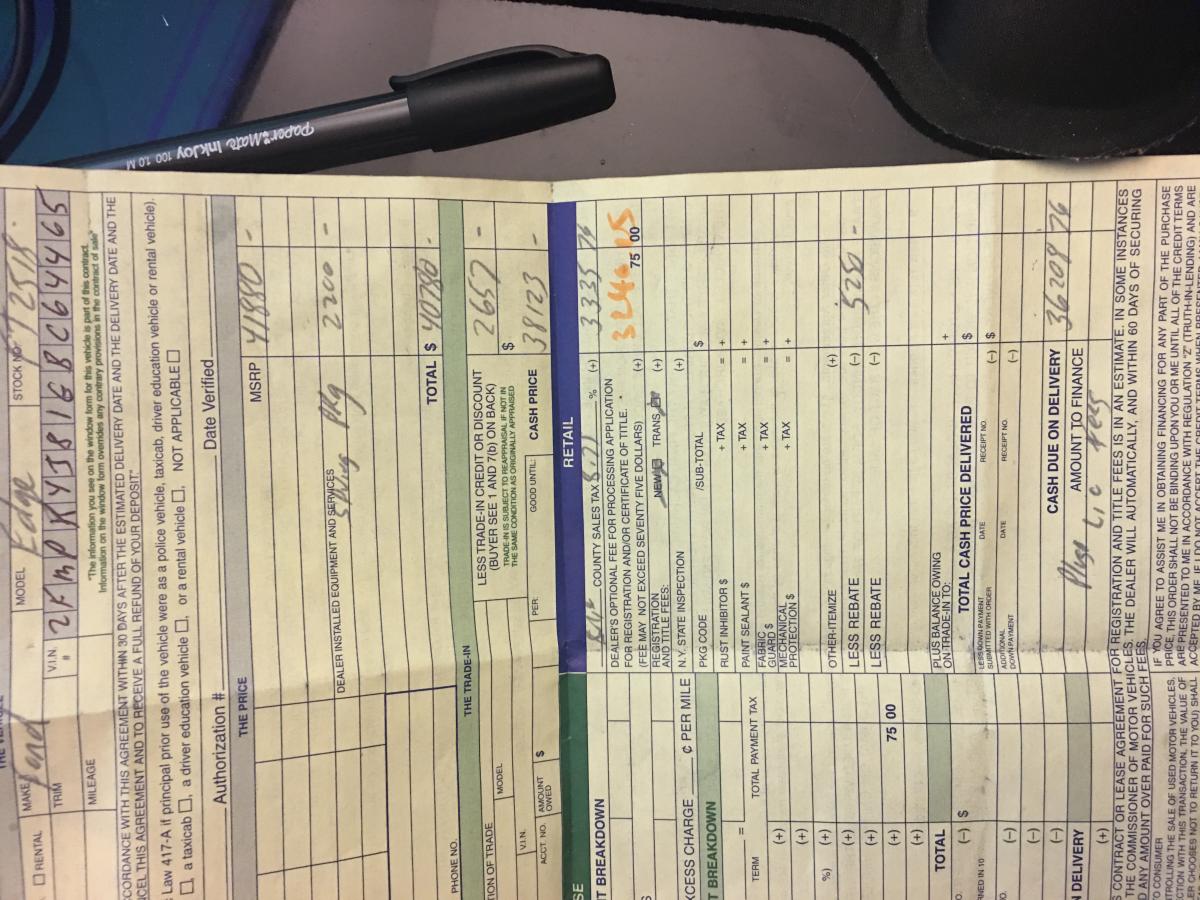 Paper Mate InkJoy 100 1.0 M
RENTAL
MAKE Ford MODEL Edge STOCK NO.
TRIM
V.I.N. #
MILEAGE
"The information you see on the window form for this vehicle is part of this contract.
Information on the window form overrides any contrary provisions in the contract of sale"
CCORDANCE WITH THIS AGREEMENT WITHIN 30 DAYS AFTER THE ESTIMATED DELIVERY DATE AND THE DELIVERY DATE AND THE
NCEL THIS AGREEMENT AND TO RECEIVE A FULL REFUND OF YOUR DEPOSIT."
Law 417-A if principal prior use of the vehicle were as a police vehicle, taxicab, driver education vehicle or rental vehicle).
, a taxicab , a driver education vehicle , or a rental vehicle , NOT APPLICABLE
Authorization # Date Verified
THE PRICE
MSRP 41880 -
DEALER INSTALLED EQUIPMENT AND SERVICES
Pkg 2200 -
TOTAL $ 40780 -
THE TRADE-IN
PHONE NO.
LESS TRADE-IN CREDIT OR DISCOUNT 2657 -
(BUYER SEE 1 AND 7(b) ON BACK)
TRADE-IN IS SUBJECT TO REAPPRAISAL IF NOT IN
THE SAME CONDITION AS ORIGINALLY APPRAISED
TION OF TRADE
MODEL
V.I.N.
ACCT. NO. AMOUNT OWED $ PER: GOOD UNTIL: CASH PRICE $ 38123 -
SE
RETAIL
T BREAKDOWN
COUNTY SALES TAX % (+) 3335 76
3246.15
DEALER'S OPTIONAL FEE FOR PROCESSING APPLICATION
FOR REGISTRATION AND/OR CERTIFICATE OF TITLE.
(FEE MAY NOT EXCEED SEVENTY FIVE DOLLARS) (+) 75 00
REGISTRATION AND TITLE FEES: NEW TRANS (+)
N.Y. STATE INSPECTION (+)
XCESS CHARGE ¢ PER MILE
T BREAKDOWN
PKG CODE /SUB-TOTAL $
RUST INHIBITOR $ + TAX = +
TERM = TOTAL PAYMENT TAX
PAINT SEALANT $ + TAX = +
FABRIC GUARD $ + TAX = +
MECHANICAL PROTECTION $ + TAX = +
OTHER-ITEMIZE (+)
LESS REBATE (-) 5250 -
LESS REBATE (-)
75 00
PLUS BALANCE OWING
ON TRADE-IN TO: +
TOTAL
TOTAL CASH PRICE DELIVERED $
LESS DOWN PAYMENT SUBMITTED WITH ORDER DATE RECEIPT NO. (-) $
ADDITIONAL DOWN PAYMENT DATE RECEIPT NO. (-)
CASH DUE ON DELIVERY 36209 76
AMOUNT TO FINANCE
Plus Lic Fees
N DELIVERY
S CONTRACT OR LEASE AGREEMENT FOR REGISTRATION AND TITLE FEES IS AN ESTIMATE. IN SOME INSTANCES
THE COMMISSIONER OF MOTOR VEHICLES. THE DEALER WILL AUTOMATICALLY, AND WITHIN 60 DAYS OF SECURING
D ANY AMOUNT OVER PAID FOR SUCH FEES.
TO CONSUMER
TROLLING THE SALE OF USED MOTOR VEHICLES,
CTION WITH THIS TRANSACTION, THE VALUE OF
LER CHOOSES NOT TO RETURN IT TO YOU) SHALL
IF YOU AGREE TO ASSIST ME IN OBTAINING FINANCING FOR ANY PART OF THE PURCHASE
PRICE, THIS ORDER SHALL NOT BE BINDING UPON YOU OR ME UNTIL ALL OF THE CREDIT TERMS
ARE PRESENTED TO ME IN ACCORDANCE WITH REGULATION "Z" (TRUTH-IN-LENDING) AND ARE
ACCEPTED BY ME.